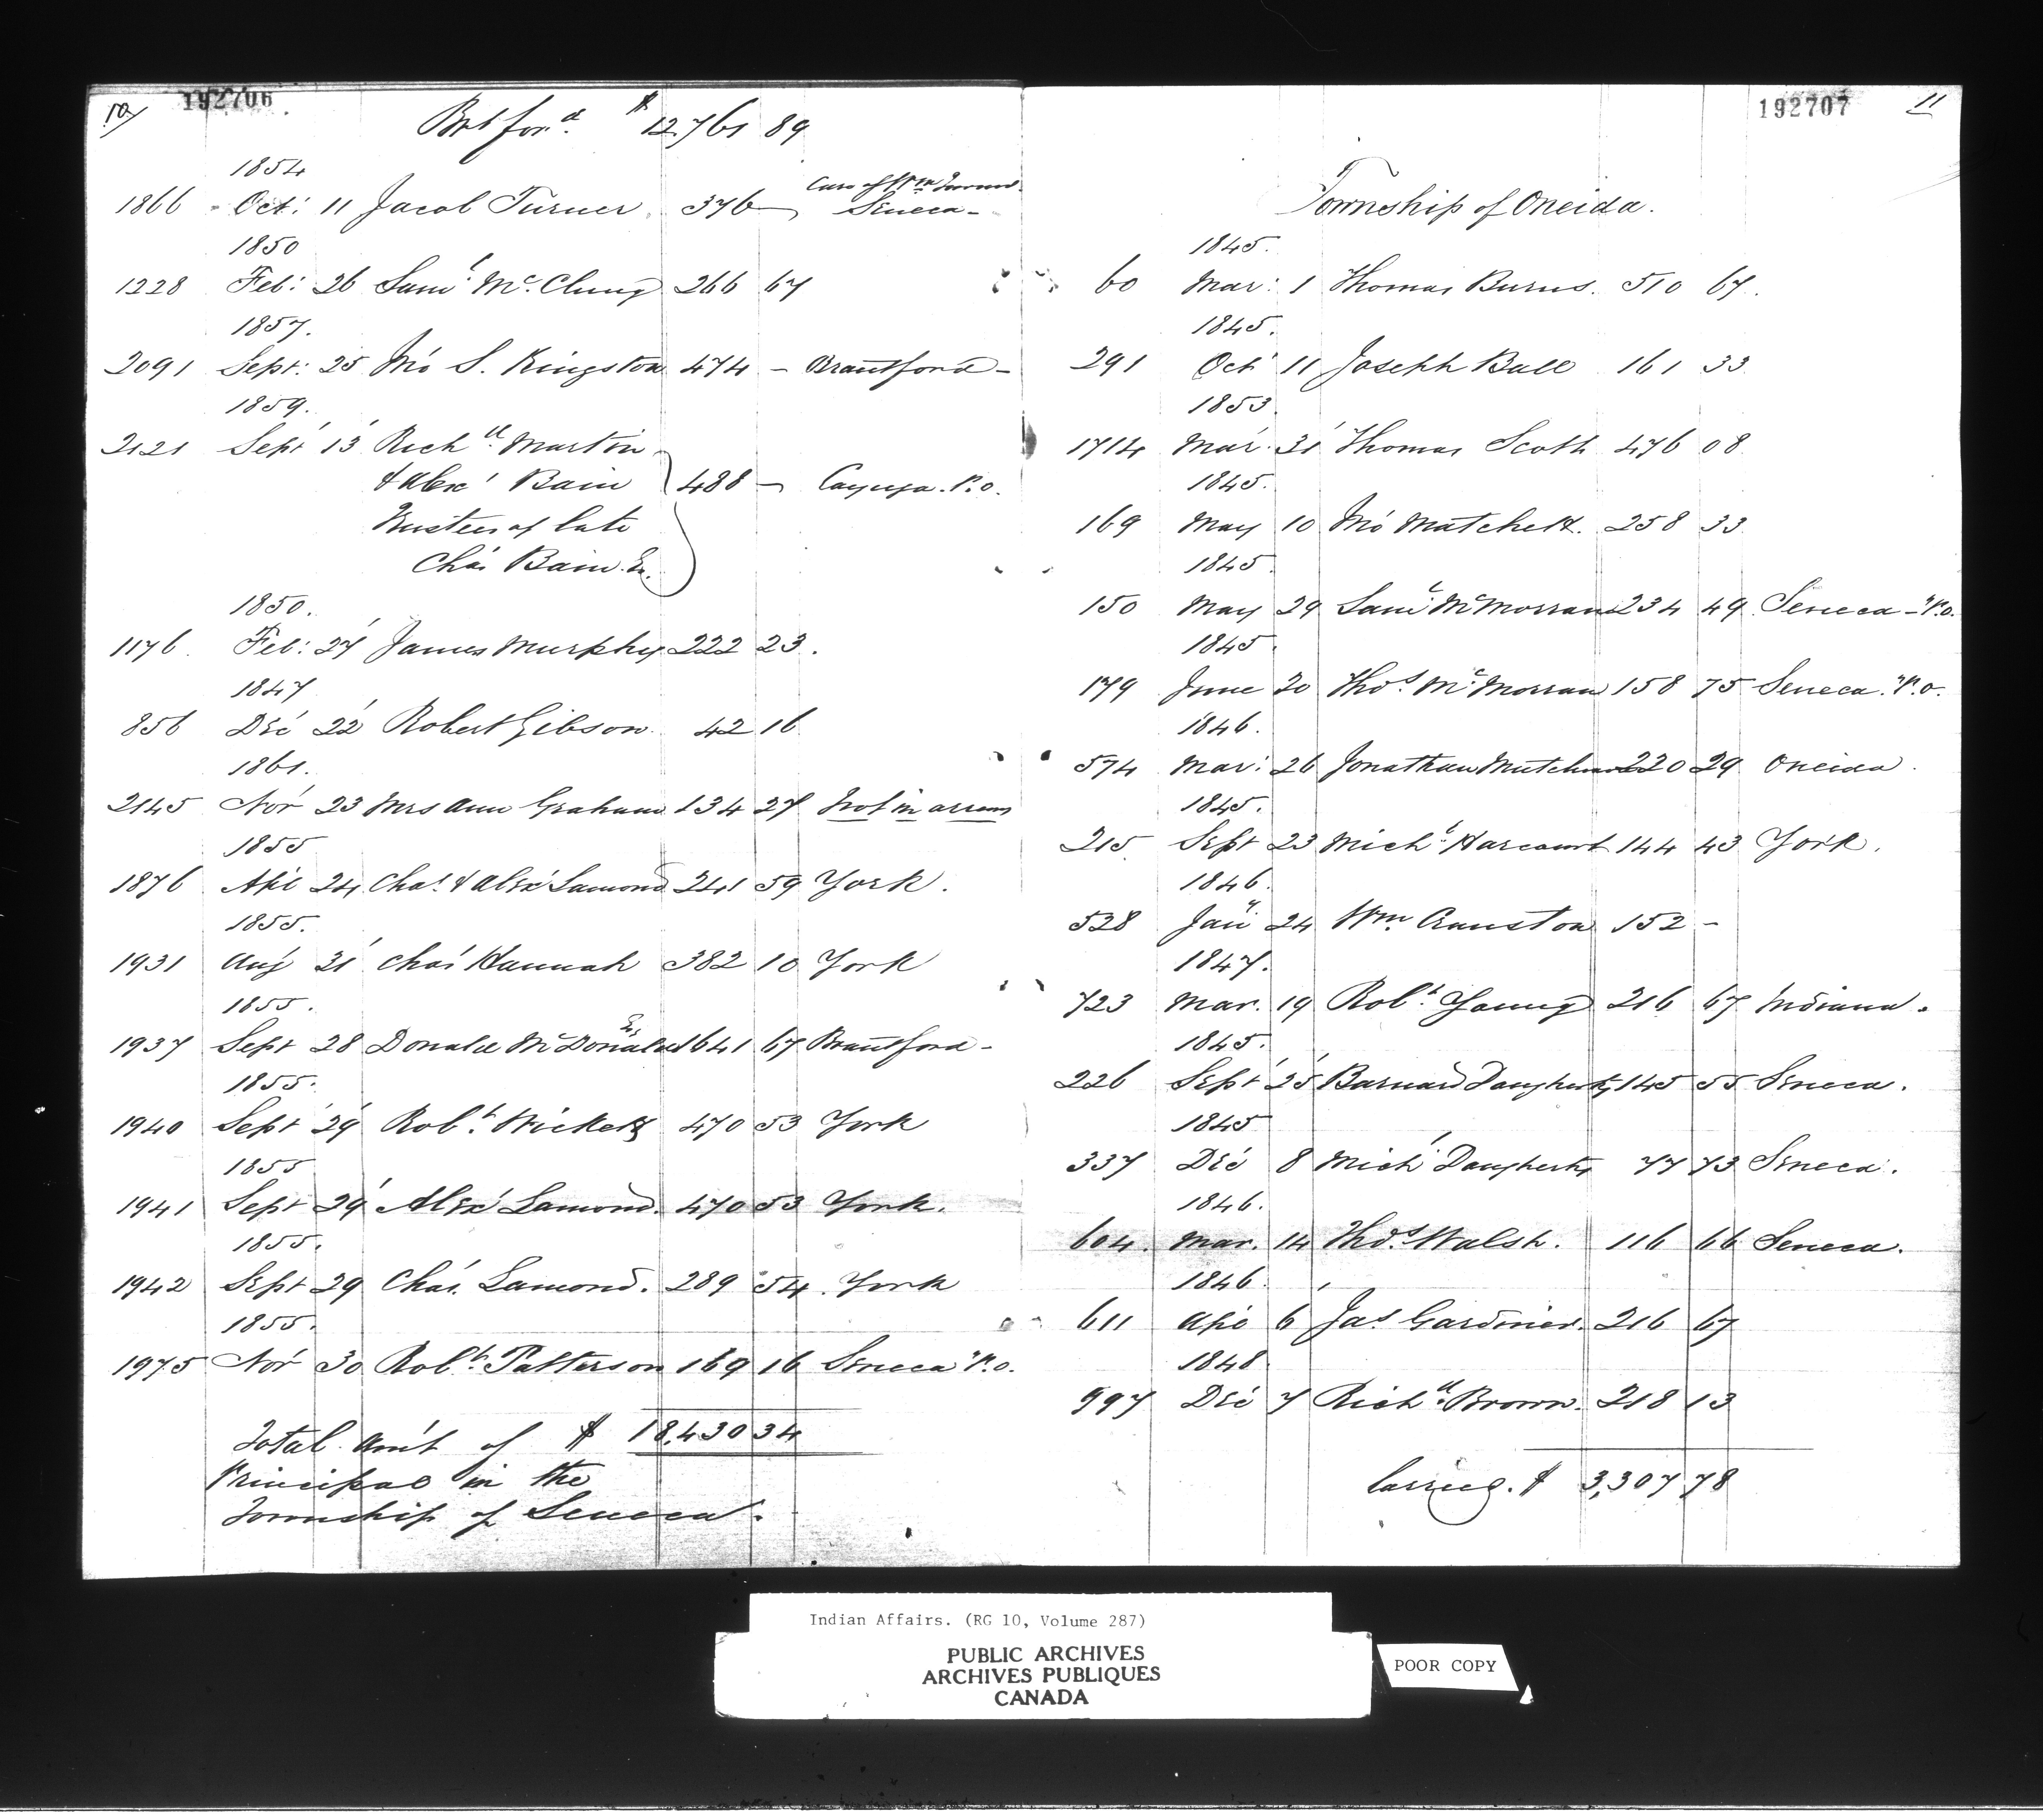 10/ 192706
Bᵗ forᵈ. $ 12,761 89
1854
Care of Wm Turner
1866 Oct: 11 Jacob Turner 376 — Seneca -
1850
1228 Feb: 26 Samˡ. Mc. Clung 266 67
1857.
2091 Sept: 25 Jno S. Kingston 474 - Brantford -
1859.
2121 Sept 13 Richᵈ. Martin
& Alexʳ Bain 488 — Cayuga. P.O.
Trustees of late
Chas Bain. Es.
1850.
1176. Feb: 27 James Murphy 222 23.
1847
856 Dec 22 Robert Gibson 42 16
1861.
2145 Nov 23 Mrs Ann Graham 134 27 Not in arrears
1855
1876 Apl 24 Chas. & Alexʳ Lamond 241 59 York.
1855.
1931 Aug 31 Chas Hannah 382 10 York
1855.
1937 Sept 28 Donald McDonald Es 1641 67 Brantford -
1855.
1940 Sept 29 Robᵗ. Wickett 470 53 York
1855
1941 Sept 29 Alexʳ Lamond. 470 53 York.
1855.
1942 Sept 29 Chas. Lamond. 289 54. York
1855.
1975 Nov 30 Robᵗ. Patterson 169 16 Seneca P.O.
Total am't of $ 18,430 34
Principal in the
Township of Seneca.
192707 11
Township of Oneida.
1845.
60 Mar: 1 Thomas Burns. 510 67.
1845.
291 Oct 11 Joseph Ball 161 33
1853
1714 Mar. 31 Thomas Scott 476 08
1845.
169 May 10 Jno Matchett. 258 33
1845
150 May 29 Samˡ. McMorran 234 49 Seneca - P.O.
1845
179 June 20 Thoˢ. Mc.Morran 158 75 Seneca. P.O.
1846.
574 Mar: 26 Jonathan 220 29 Oneida.
1845.
215. Sept 23 Michˡ Harcourt 144 43 York.
1846.
528 Jany 24 Wm Cranston 152 -
1847.
723 Mar. 19 Robᵗ. Young 216 67 Indiana.
1845.
226 Sept 25 Barnard Daugherty 145 55 Seneca.
1845
337 Dec 8 Mich Daugherty 77 73 Seneca.
1846.
604. Mar. 14 Thoˢ. Walsh. 116 66 Seneca.
1846.
611 Apl 6 Jaˢ Gardiner. 216 67
1848
997 Dec 7 Richᵈ. Brown. 218 13
Carried. $ 3,307 78
Indian Affairs. (RG 10, Volume 287)
PUBLIC ARCHIVES
ARCHIVES PUBLIQUES
CANADA
POOR COPY